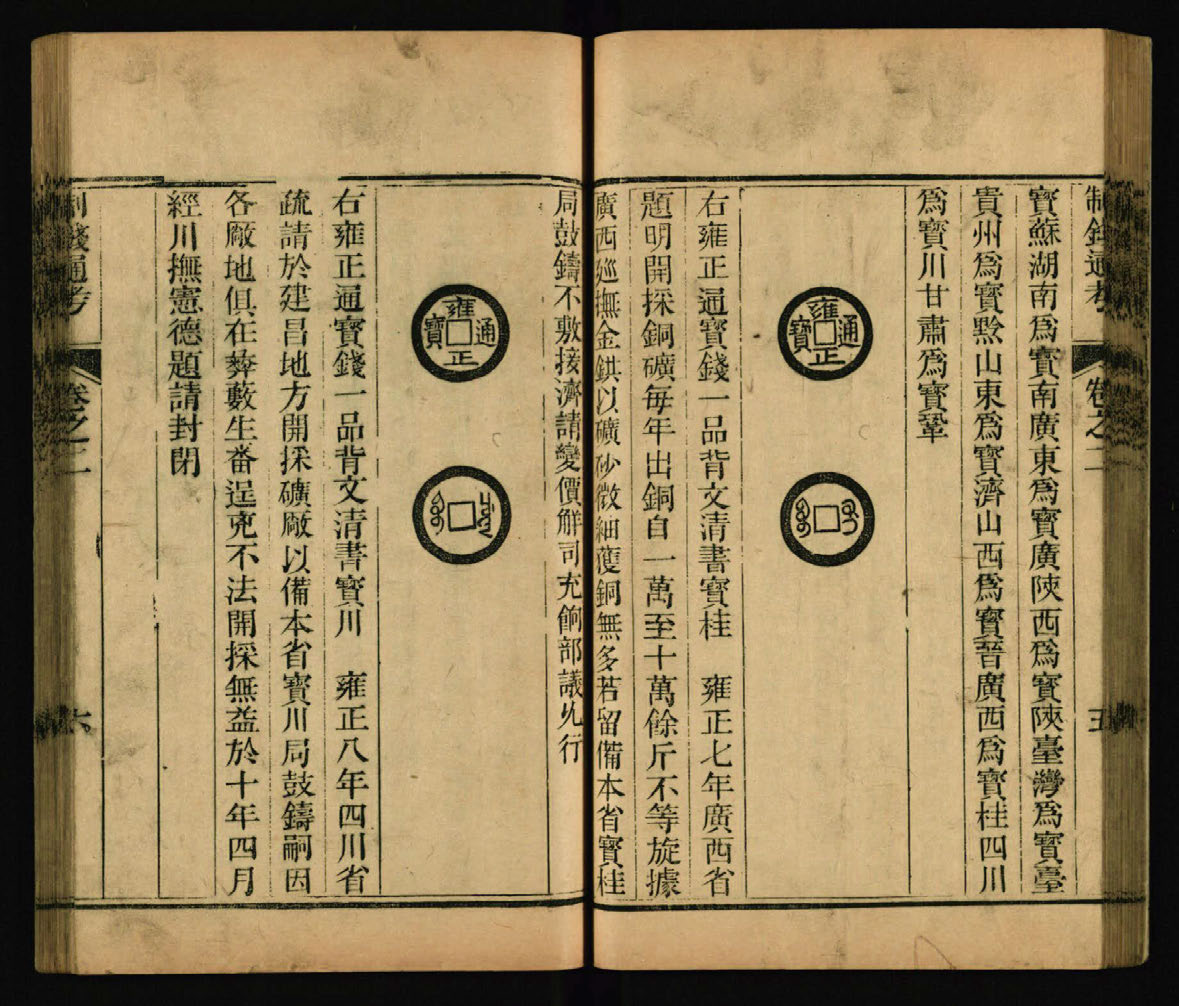 制錢通考
卷之二
五
寶蘇湖南爲寳南廣東爲寳廣陜西爲寳陜臺灣爲寳臺
貴州爲寳黔山東爲寳濟山西爲寳晉廣西爲寳桂四川
爲寳川甘肅爲寳鞏
雍正通寶
右雍正通寳錢一品背文清書寳桂　雍正七年廣西省
題明開採銅礦每年出銅自一萬至十萬餘斤不等旋據
廣西廵撫金鉷以礦砂微細獲銅無多若留備本省寳桂
局鼓鑄不敷接濟請變價觧司充餉部議允行
雍正通寶
右雍正通寳錢一品背文清書寳川　雍正八年四川省
疏請於建昌地方開採礦廠以備本省寳川局鼓鑄嗣因
各廠地俱在彜藪生畨逞兇不法開採無益於十年四月
經川撫憲德題請封閉
制錢通考
卷之二
六